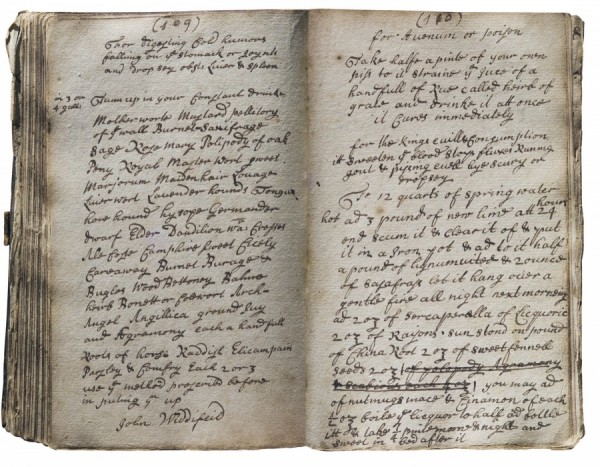 (109)
For digesting Cold humors
falling on ye stomack or Joynts
and dropsey obsts Liver & Spleen
in 3 or
4 galls
Tunn up in your Constant drinke
Motherworte Mustard pellitory
of ye wall Burnet Saxifrage
Sage Rose Mary Polipody of oak
Peny Royal Master wort sweet
Marjorum Maidenhair Lovage
Liver wort Lavender hounds Tongue
hore hound hysope Germander
dwarf Elder Dandilion wa: Cresses
Ale Cost Camphire sweet Cicely
Careaway Burnet Burage &
Bugles Wood Betoney Balme
herb Bonett or Colwort Arch-
Angel Angillica ground Ivy
and Agramony each a handfull
Roots of horse Raddish Elicampain
Parsley & Comfry Each 2 or 3
use ye method proscrited before
in puting ym up
John Widdifeild
(110)
for Avenum or poison
Take halfe a pinte of your own
piss to it straine ye Juce of a
handfull of Rue called herb of
grace and drinke it att once
it Cures immediately
for the Kings evill & Consumption
it sweetens ye blood stops fluxes Runing
gout & pissing evill Lyes scurvy or
dropsey
To 12 quarts of spring water
hot ad 3 pound of new lime att 24
hours
end scum it & clear it of & put
it in a Iron pot & ad to it half
a pound of Lignumvitæ & 2 ounces
of Sasafras let it hang over a
gentle fire all night next morneing
ad 2 oz of Sercaperella of Licquorice
2 oz of Rayons sun stond on pound
of China Root 2 oz of sweet fennell
seeds 2 oz of polopody Agramony
& Scabious each 1 oz, you may ad
of nutmugs mace & Cinamon of each
½ oz boile ye Licquor to half ad bottle
itt & take ½ pinte morne & night and
sweet in bed after it